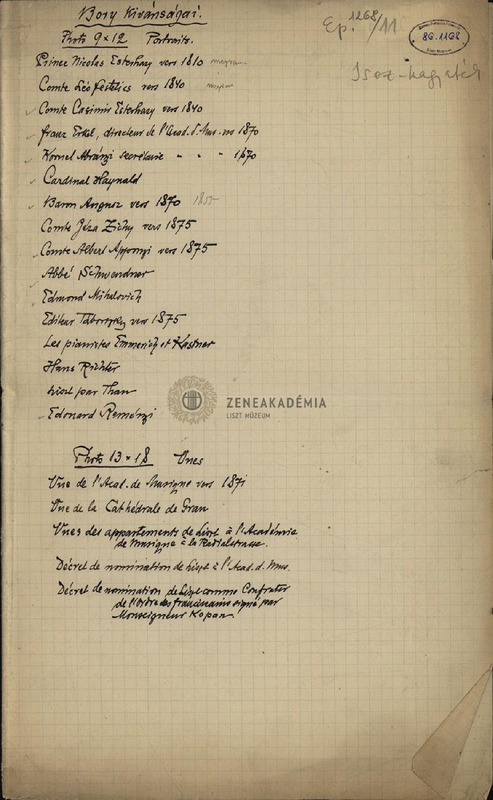 Bory Kivánságai.
Ep. 1268/11
86.1168
Isoz-hagyaték
Photo 9×12 Portraits.
Prince Nicolas Esterhazy vers 1810 megvan
Comte Léo Festetics vers 1840 megvan
Comte Casimir Esterhazy vers 1840
Franz Erkel, directeur de l'Acad. d. Mus. vers 1870
Kornel Abrányi secrétaire " " " 1870
Cardinal Haynald
Baron Augusz vers 1870 1855
Comte Géza Zichy vers 1875
Comte Albert Apponyi vers 1875
Abbé Schwendner
Edmond Mihalovich
Editeur Táborszky vers 1875
Les pianistes Emmerich et Kastner
Hans Richter
Liszt par Than
Edouard Reményi
ZENEAKADÉMIA
LISZT MÚZEUM
Photo 13×18 Vues
Vue de l'Acad. de Musique vers 1871
Vue de la Cathédrale de Gran
Vues des appartements de Liszt à l'Académie
de Musique à la Radialstrasse.
Décret de nomination de Liszt à l'Acad. d. Mus.
Décret de nomination de Liszt comme Confrater
de l'Ordre des franciscains signé par
Monseigneur Kopan